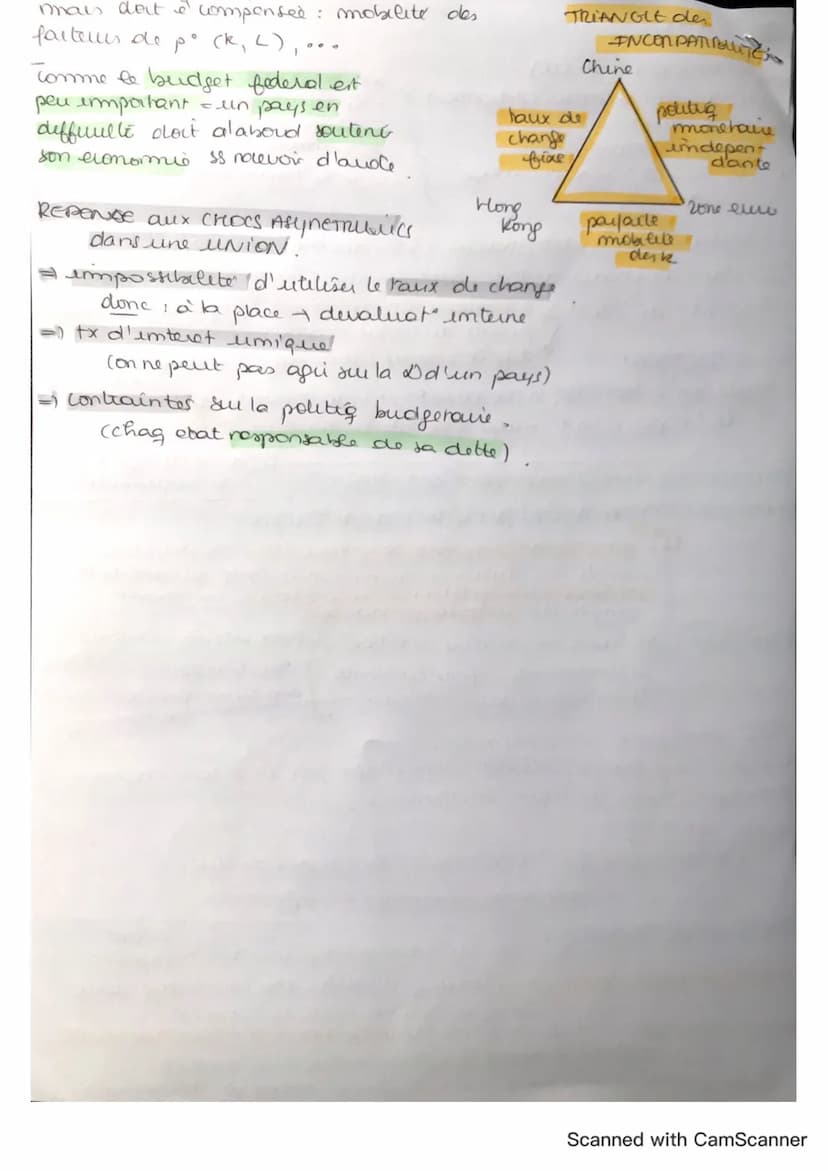 mais doit ê compensée : mobilité des
facteurs de p° (K, L), ...
Comme le budget fédéral est
peu important = un pays en
difficulté doit d'abord soutenir
son économie ss recevoir d'aide.
TRIANGLE des
INCOMPATIBILITÉS
Chine
taux de
change
fixe
politiq
monétaire
indépen-
dante
Hong
Kong
parfaite
mobilité
des K
zone euro
REPONSE aux CHOCS ASYMETRIQUES
dans une UNION.
⇒ impossibilité d'utiliser le taux de change
donc : à la place → devaluat° interne
⇒ tx d'interet unique
(on ne peut pas agir sur la D d'un pays)
⇒ contraintes sur la politiq budgetaire.
(chaq etat responsable de sa dette).
Scanned with CamScanner